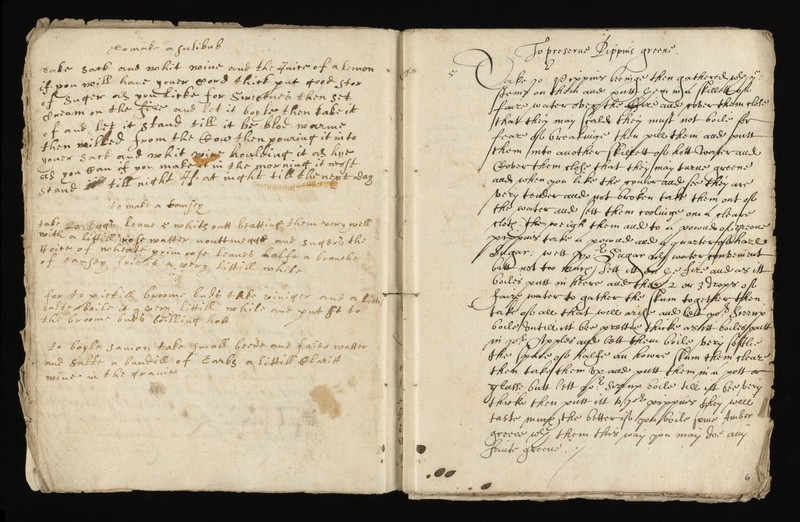 To make a sulibub
take sack and whit wine and the Juice of a lemon
if you will have youer Cord thick put good stor
of Suger as you Licke for Sweetnes then set
Cream on the fire and let it boyle then take it
of and let it stand till it be blod warme
then milked from the Cow then powring it into
youer sack and whit wine houlding it as hye
as you Can if you make it in the morning it most
stand till night if at night till the next day
to make a tansey
take eggs leave whits outt beatting them very well
with a littill rose watter nouttmegg and Suger the
Joice of wheate primrose leaves halfe a branche
of tansey friet a very littill while
for to pickill broome buds take viniger and a litt
salte boile it a very littill while and put it to
the broome buds boilling hott
to boyle samon take small beere and faier watter
and salte a bundill of Earbs a littill Claritt
wine in the
To preserve Pippins greene
Take 20 Pippins beeinge then gathered with the
stems on them and putt them in a skillett of
faire water over the fire and cover them close
that they may scald they must not boile for
feare of breakinge then pill them and putt
them into another skillett of hott water and
Cover them close that they may turne greene
and when you like the couler and see they are
very tender and not broken take them out of
the water and sett them coolinge on a cleane
cloth then weigh them and to a pound of greene
pippins take a pound and a quarter of hard
Sugar: wett the Sugar with water convenient
butt not too much sett itt on the fire and as itt
boiles putt in heere and there 2 or 3 drops of
faire water to gather the skum together then
take of all that will arise and lett your Sirrup
boile untill itt bee prettie thicke as itt boiles putt
in your Apples and lett them boile very softlie
the space of halfe an howre skum them cleane
then take them up and putt them in a pott or
glasse butt lett your Sirrup boile till itt bee very
thicke then putt itt to your pippins they will
taste much the better if you boile some Amber
greece with them this way you may doe any
fruite greene
6